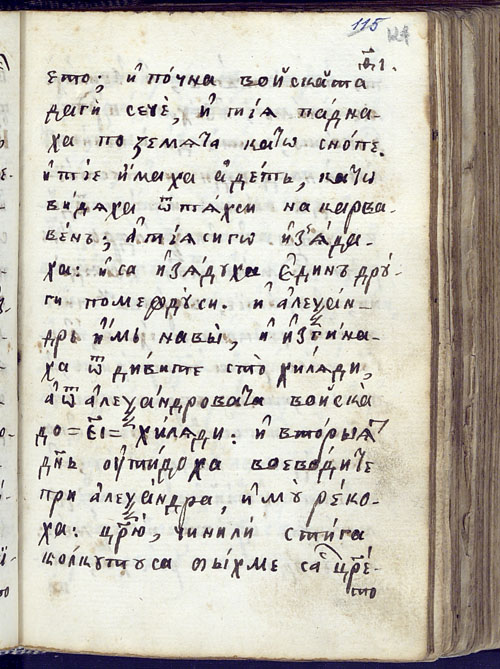 115
124
ето; и҆ по́чна во́йската
даги̏ сече̏, и҆ тїѧ па́дна-
ха по земѧта като сно́пе.
и҆ тїе и҆маха а҆де́ть, като
ви́дѧха ѿ тѧхси на карва-
вень, а҆ тїѧсиго и҆зѧ́да-
ха: и҆са и҆зѧ́духа є҆ди́нъ дрꙋ́-
ги помеѳдꙋ́си. и҆ а҆леѯа́н-
дрь и҆мь навы̀, и҆ и҆зги́на-
ха ѿ ди́вите сто̀ хи́лѧди,
а҆ ѿ а҆леѯа́ндровата войска̀
до = є҃і = хи́лѧди: и҆ вто́рыѧ
дн҃ь ѹ҆ти́доха воево́дите
при а҆леѯа́ндра, и҆ мꙋ̀ ре́ко-
ха: цр҃ю́, чинили̏ сти́га
колкутуса быхме са цр҃е-
то